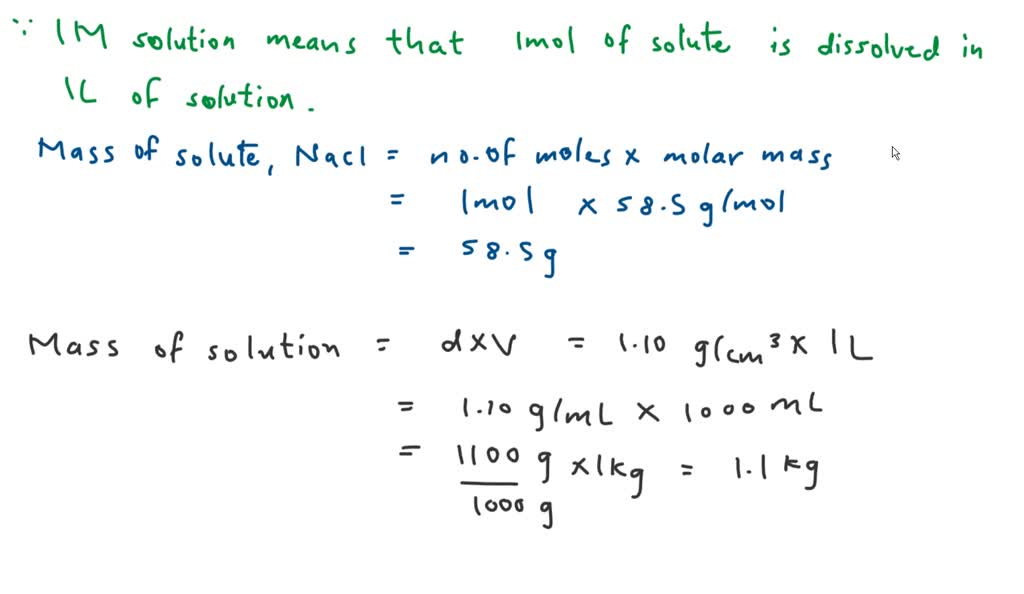 ∵ 1M solution means that 1mol of solute is dissolved in
1L of solution.
Mass of solute, NaCl = no. of moles × molar mass
= 1mol × 58.5 g/mol
= 58.5g
Mass of solution = d×V = 1.10 g/cm³ × 1L
= 1.10 g/mL × 1000 mL
= 1100 g × 1kg = 1.1 kg
1000 g